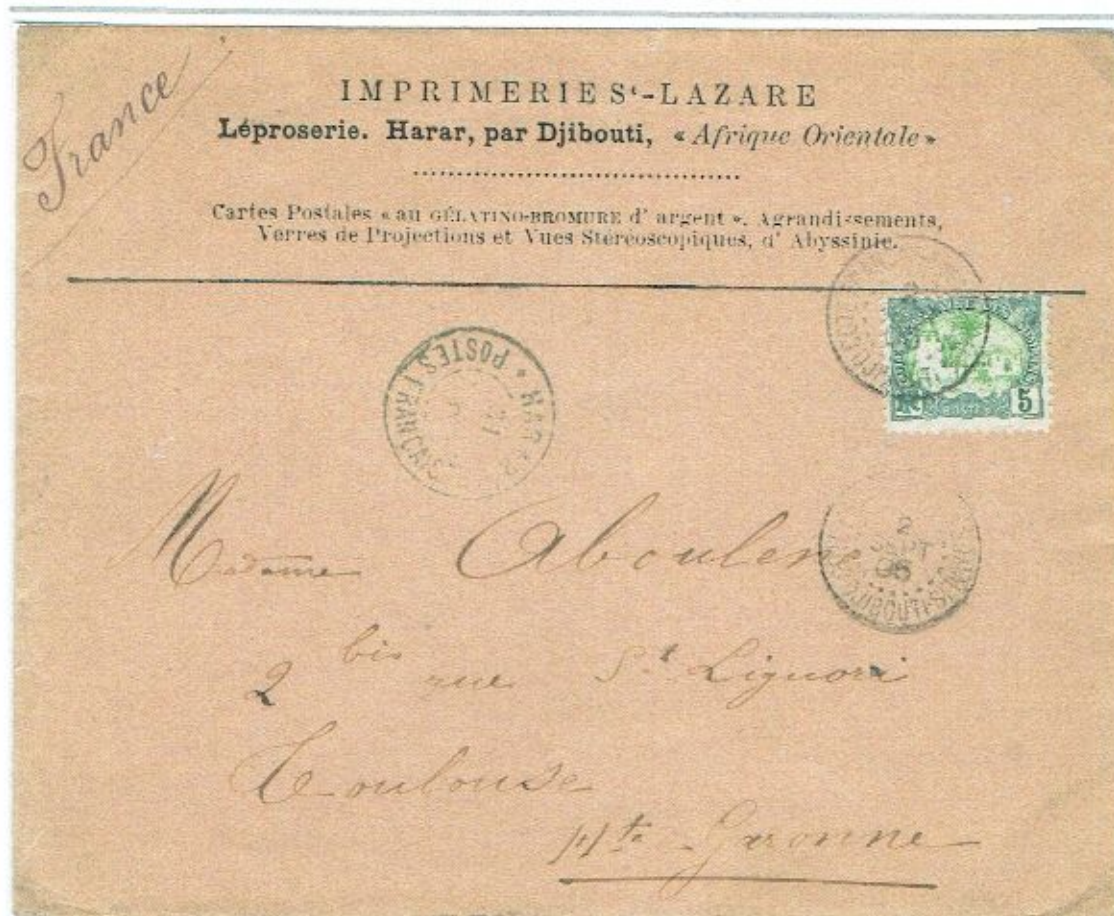 France
IMPRIMERIE St-LAZARE
Léproserie. Harar, par Djibouti, « Afrique Orientale »
Cartes Postales « au GÉLATINO-BROMURE d' argent ». Agrandissements,
Verres de Projections et Vues Stéréoscopiques, d' Abyssinie.
POSTES 5
HARAR * POSTES FRANÇAISES
Madame Aboulene
2
SEPT
05
DJIBOUTI
2 bis rue St Liguori
Toulouse
Hte-Garonne